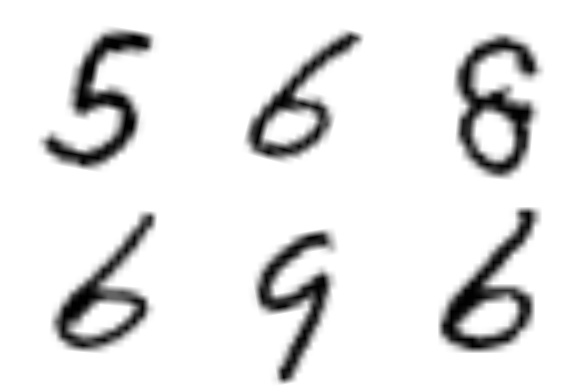 5 6 8
6 9 6